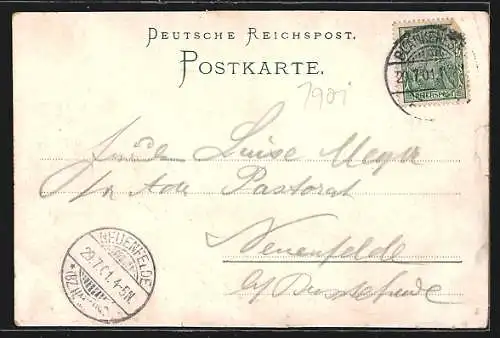 DEUTSCHE REICHSPOST.
POSTKARTE.
1901
29.7.01
REICHSPOST
Fräulein Luise Meyer
Pastorat
Neuenfelde
NEUENFELDE
29.7.01.4-5N.